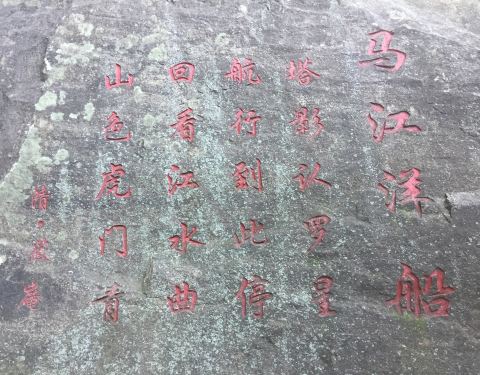 马江洋船
塔影认罗星
航行到此停
回看江水曲
山色虎门青
清·